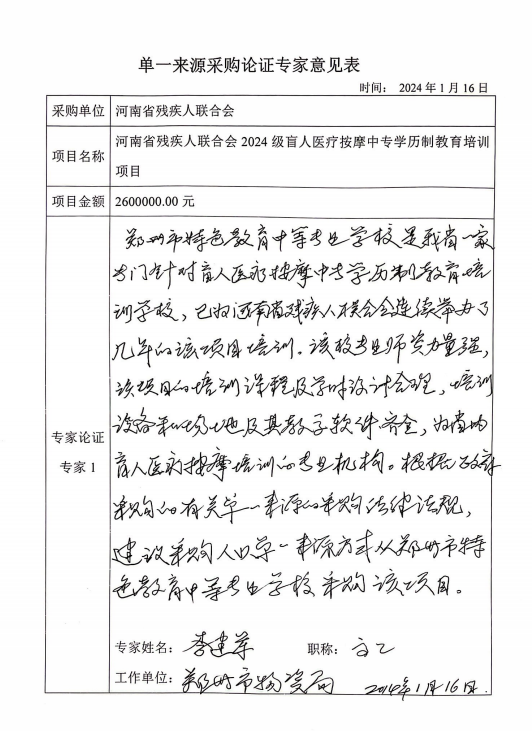 单一来源采购论证专家意见表
时间： 2024 年 1 月 16 日
采购单位 河南省残疾人联合会
项目名称 河南省残疾人联合会 2024 级盲人医疗按摩中专学历制教育培训
项目
项目金额 2600000.00 元
专家论证
专家 1
郑州市特色教育中等专业学校是我省一家
专门针对盲人医疗按摩中专学历制教育培
训学校，已为河南省残疾人联合会连续举办了
几年的该项目培训。该校专业师资力量强，
该项目的培训课程及学时设计合理，培训
设备和场地及其教学软件齐全，为省内
盲人医疗按摩培训的专业机构。根据政府
采购的有关单一来源的采购法律法规，
建议采购人以单一来源方式从郑州市特
色教育中等专业学校采购该项目。
专家姓名： 李建军 职称：
工作单位： 郑州市物资局 2024年1月16日.